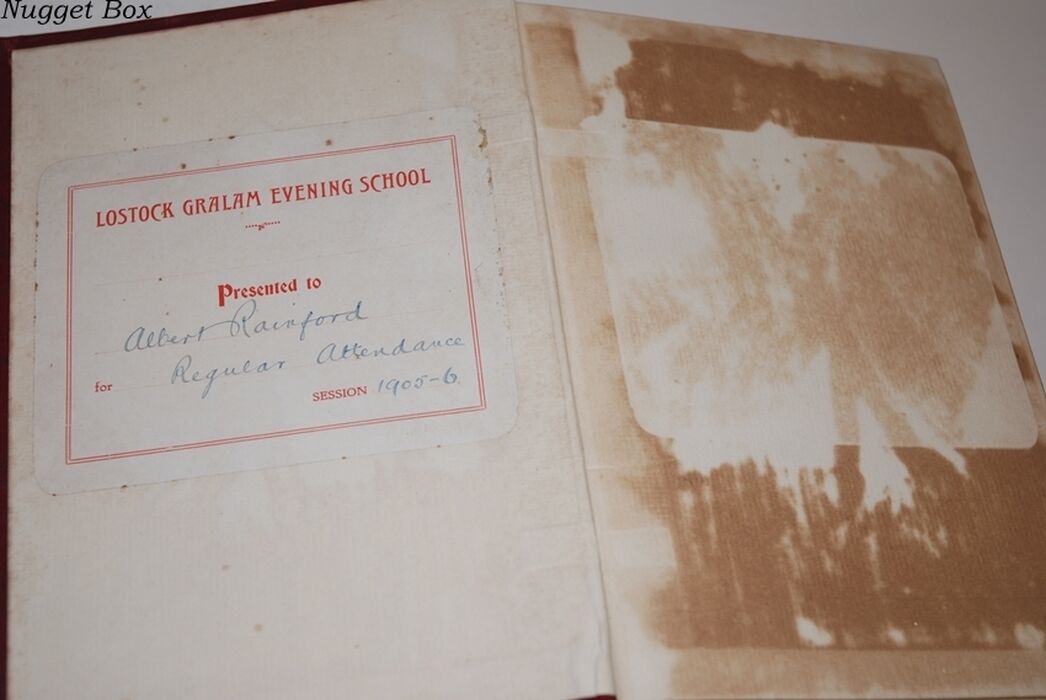 Nugget Box
LOSTOCK GRALAM EVENING SCHOOL
Presented to
Albert Rainford
for Regular Attendance
SESSION 1905-6